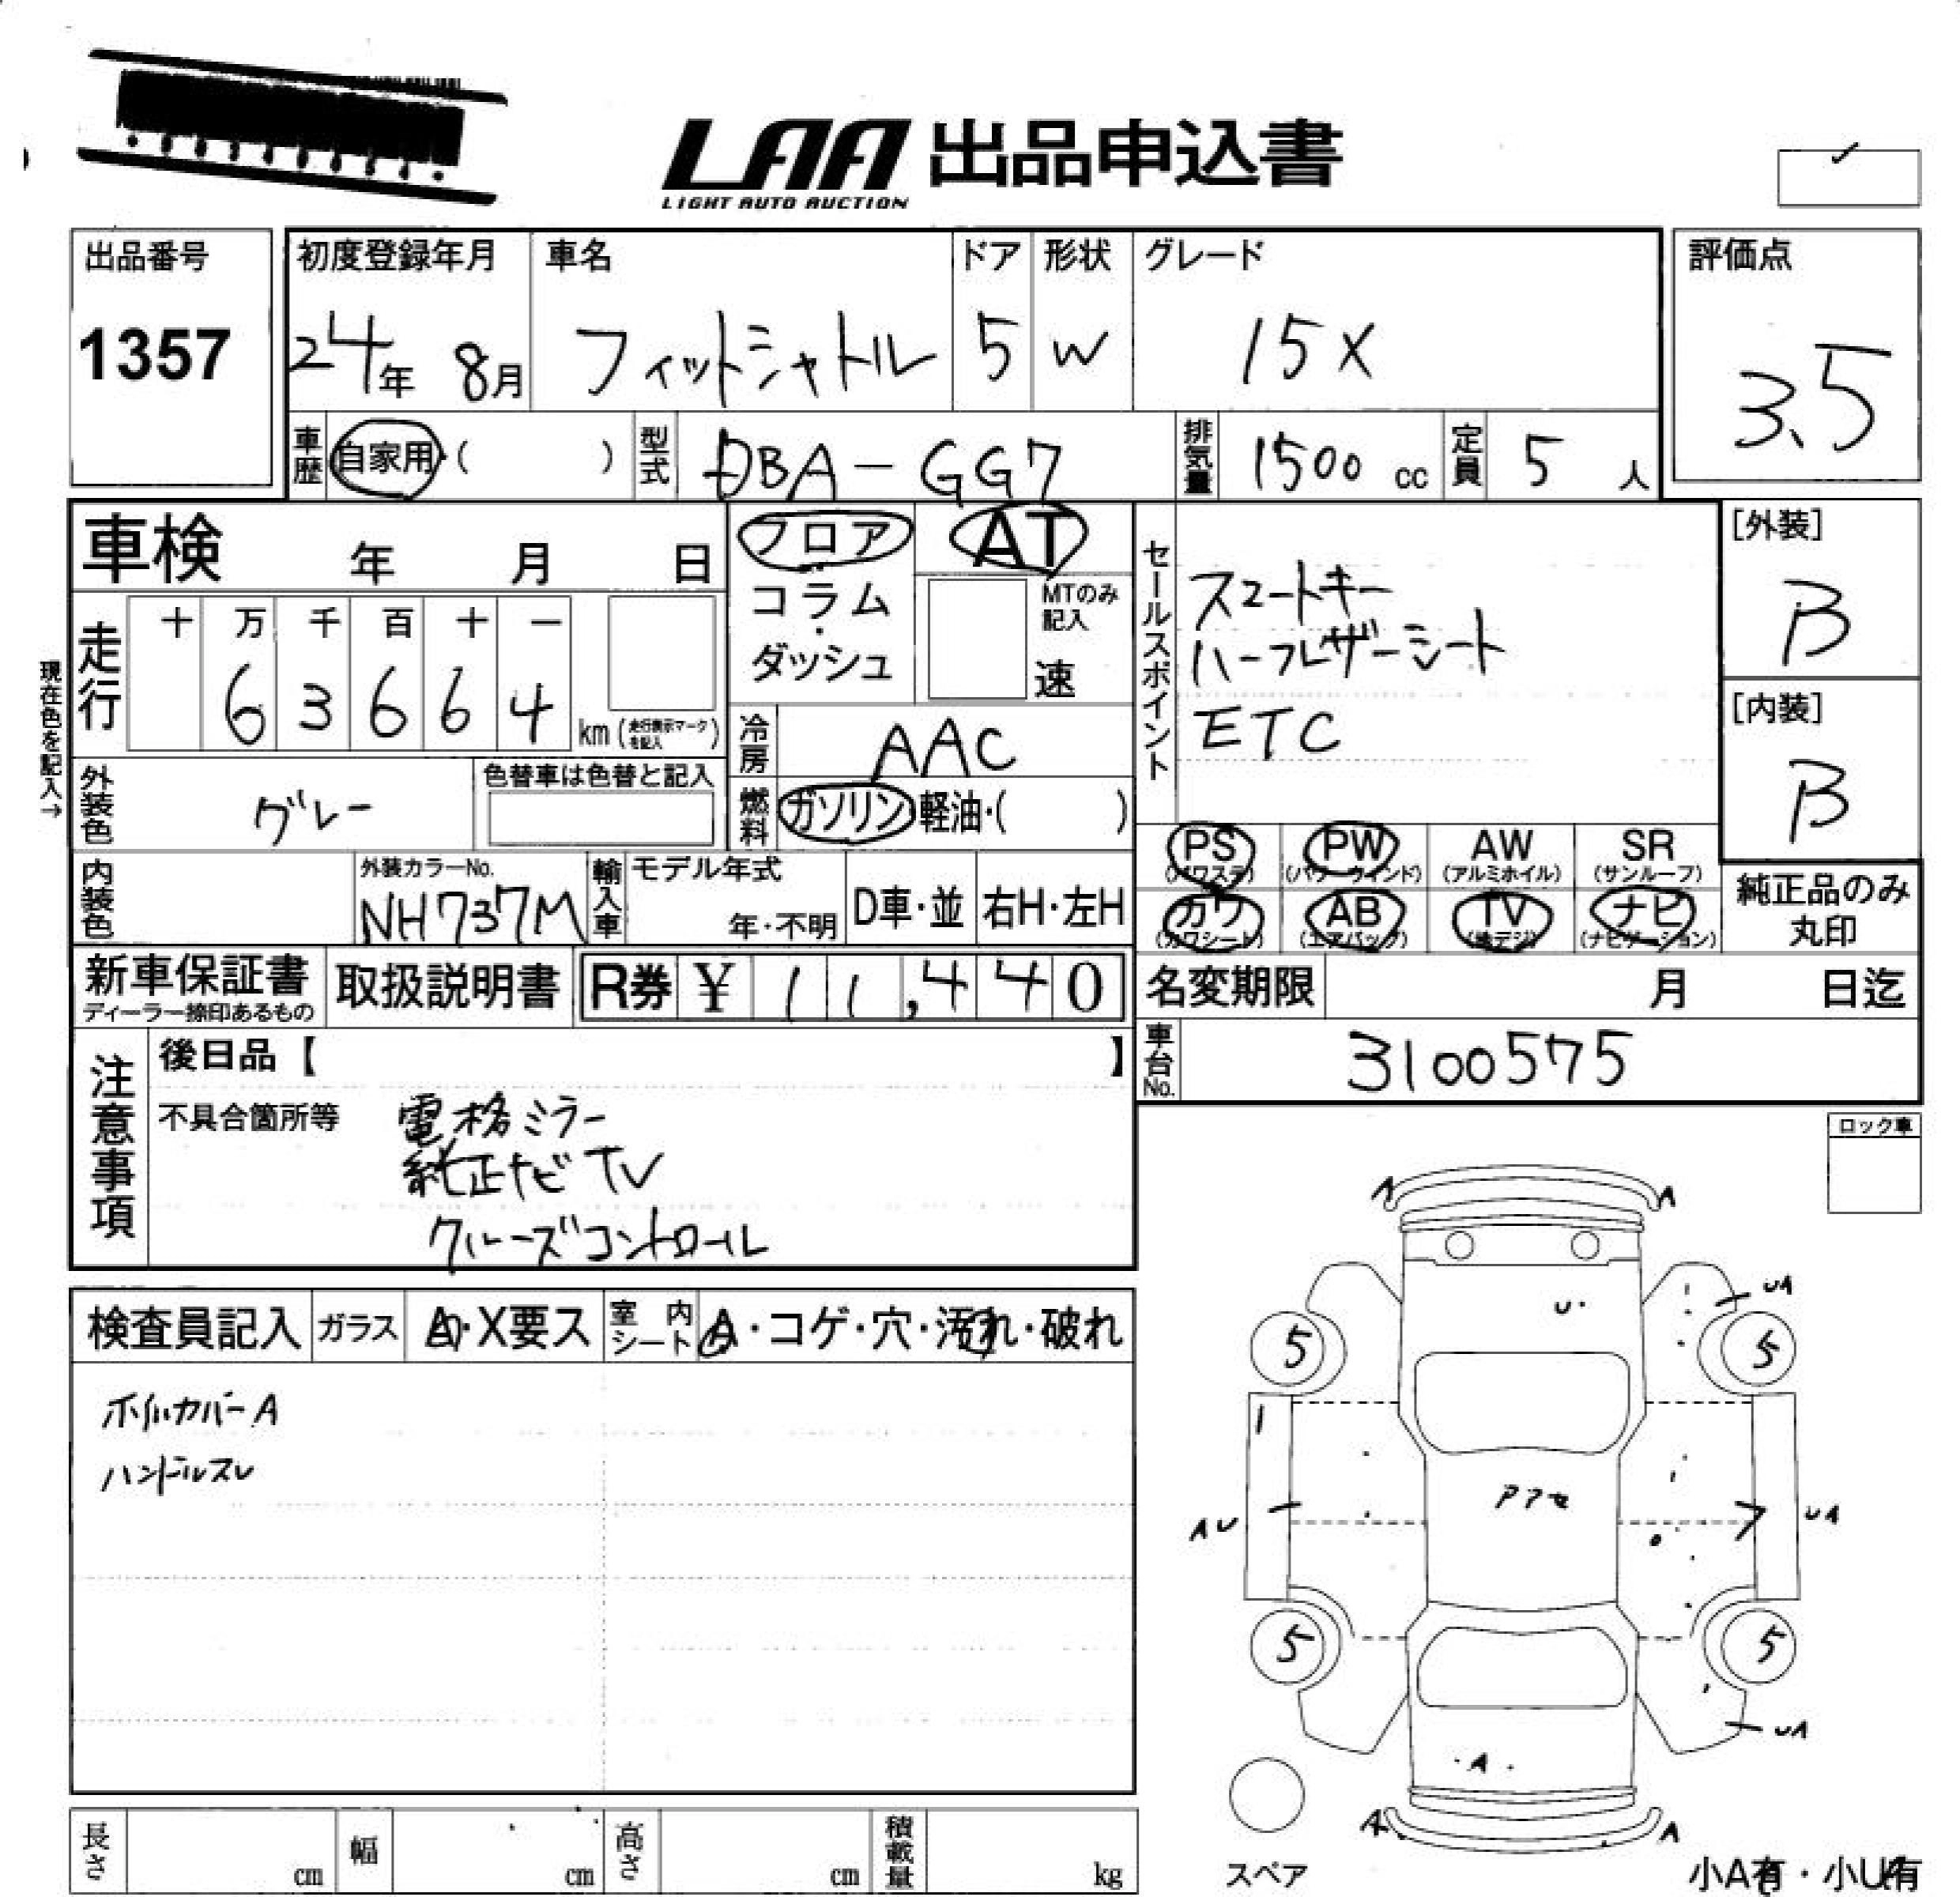 LAA 出品申込書
LIGHT AUTO AUCTION
出品番号
1357
初度登録年月
24年 8月
車名
フィットシャトル
ドア
5
形状
W
グレード
15X
評価点
3.5
車歴 自家用・( )
型式 DBA-GG7
排気量 1500 cc
定員 5 人
車検 年 月 日
フロア
コラム
・
ダッシュ
AT
MTのみ
記入
速
セールスポイント
スマートキー
ハーフレザーシート
ETC
[外装]
B
[内装]
B
現在色を記入→
走行
十 万 千 百 十 一
6 3 6 6 4 km (走行表示マークを記入)
冷房 AAC
燃料 ガソリン 軽油・( )
外装色 グレー
色替車は色替と記入
内装色
外装カラーNo.
NH737M
輸入車
モデル年式
年・不明
D車・並
右H・左H
PS PW AW SR
(パワステ) (パワーウインド) (アルミホイル) (サンルーフ)
カワ AB TV ナビ
(カワシート) (エアバック) (地デジ) (ナビゲーション)
純正品のみ
丸印
新車保証書
ディーラー捺印あるもの
取扱説明書
R券 ¥ 11,440
名変期限 月 日迄
車台No. 3100575
注意事項
後日品【 】
不具合箇所等
電格ミラー
純正ナビTV
クルーズコントロール
ロック車
検査員記入
ガラス
A・X要ス
室内シート
A・コゲ・穴・汚れ・破れ
ホイルカバーA
ハンドルスレ
A A
U
UA
5 5
アアセ
AU UA
5 5
UA
A
A A
スペア
小A有・小U有
長さ cm
幅 cm
高さ cm
積載量 kg